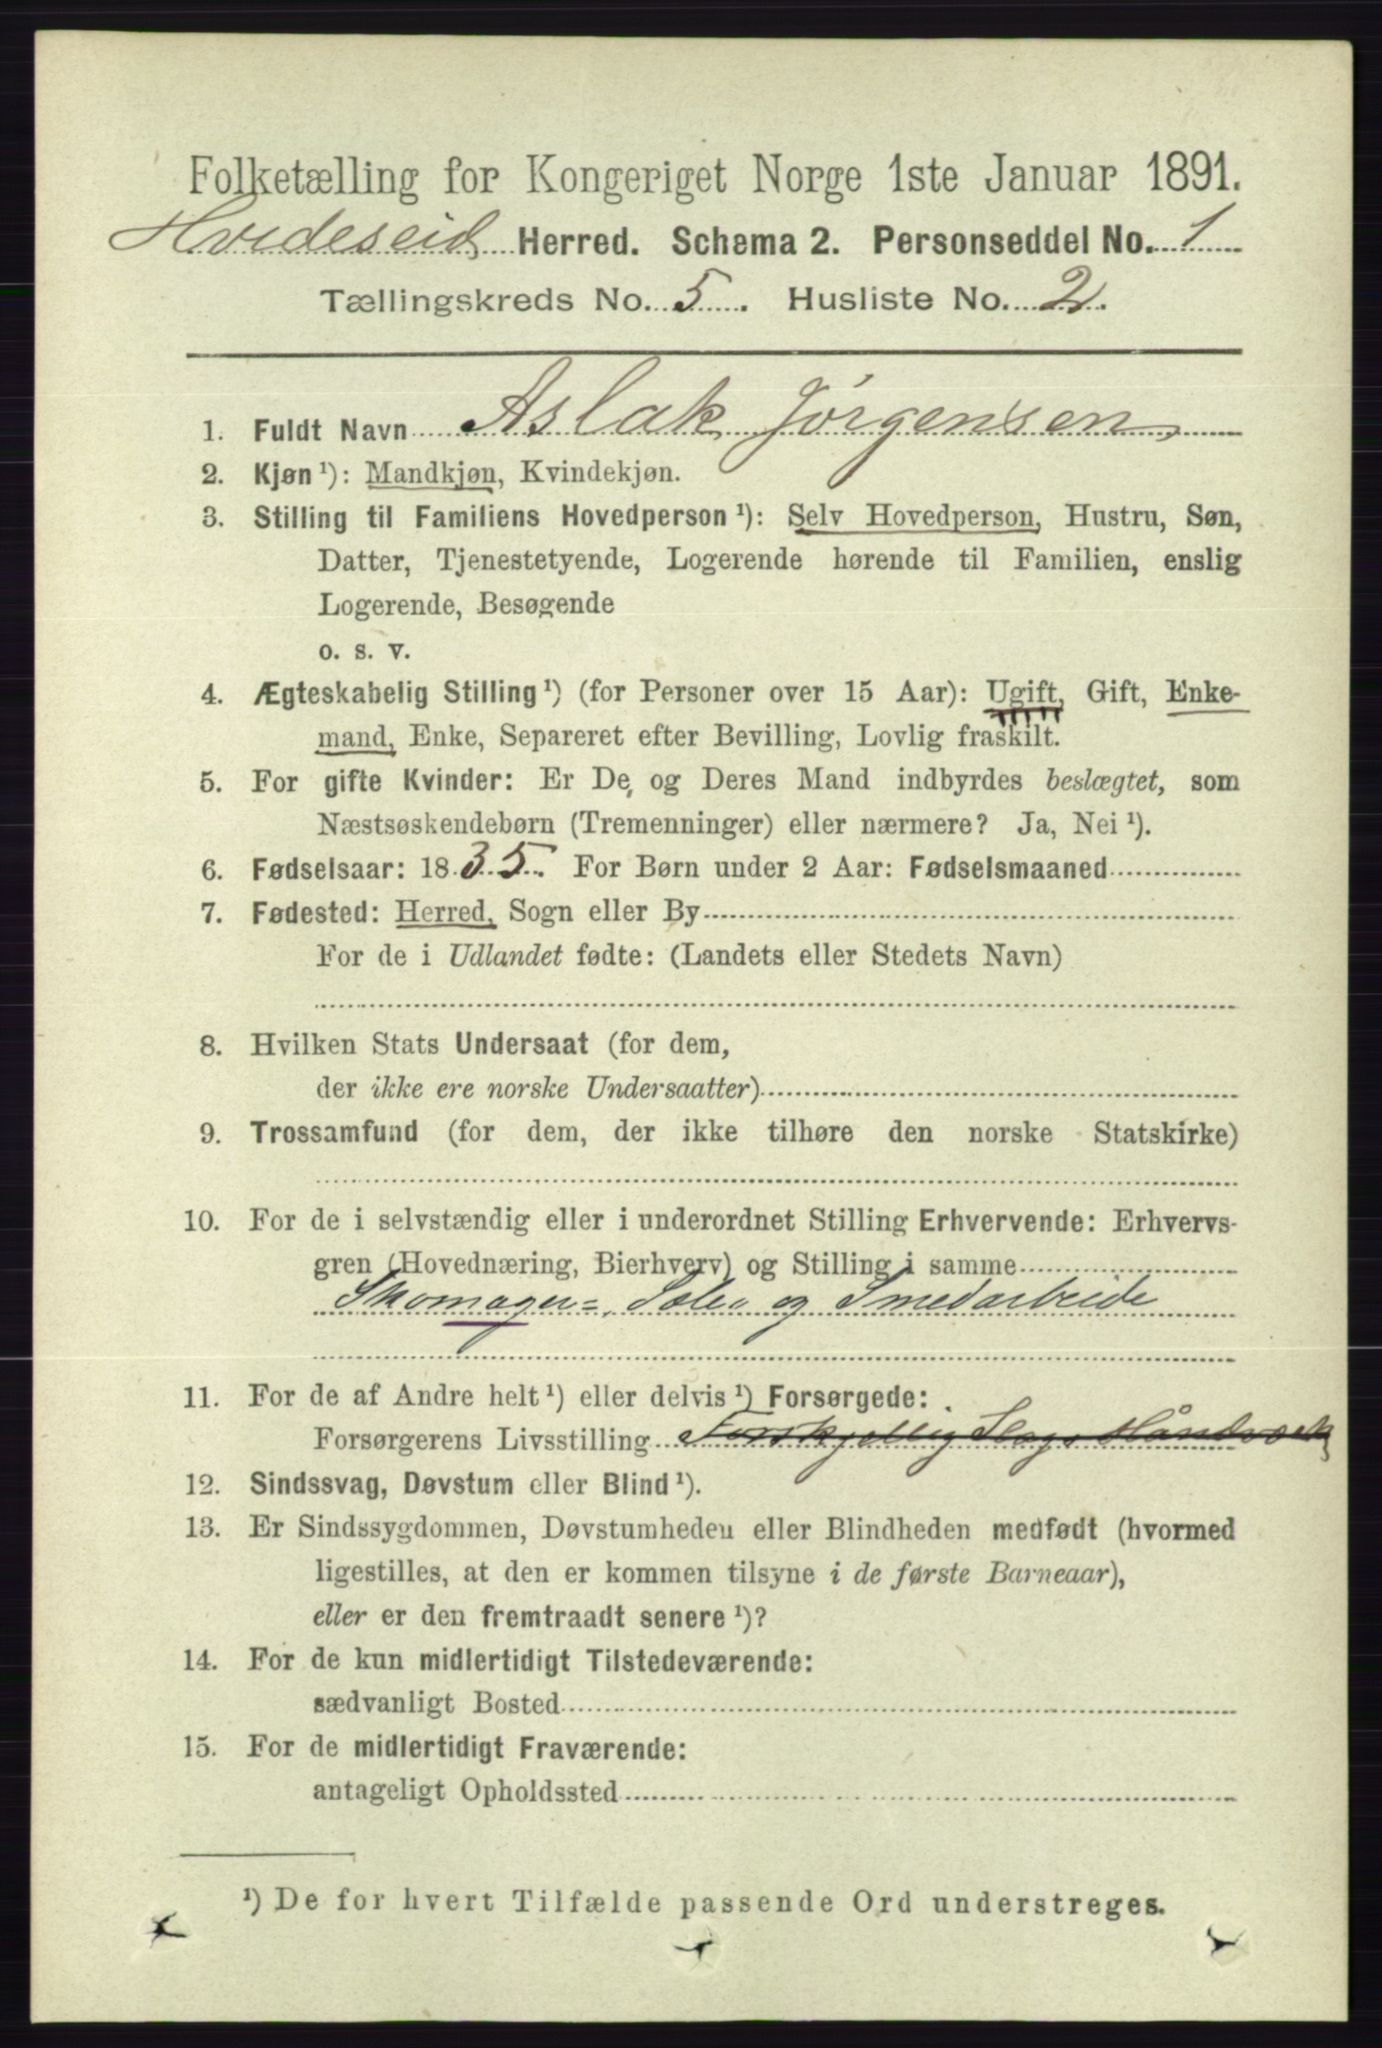 Folketælling for Kongeriget Norge 1ste Januar 1891.
Hvideseid Herred. Schema 2. Personseddel No. 1
Tællingskreds No. 5. Husliste No. 2.
1. Fuldt Navn Aslak Jörgensen,
2. Kjøn ¹): Mandkjøn, Kvindekjøn.
3. Stilling til Familiens Hovedperson ¹): Selv Hovedperson, Hustru, Søn,
Datter, Tjenestetyende, Logerende hørende til Familien, enslig
Logerende, Besøgende
o. s. v.
4. Ægteskabelig Stilling ¹) (for Personer over 15 Aar): Ugift, Gift, Enke-
mand, Enke, Separeret efter Bevilling, Lovlig fraskilt.
5. For gifte Kvinder: Er De og Deres Mand indbyrdes beslægtet, som
Næstsøskendebørn (Tremenninger) eller nærmere? Ja, Nei ¹).
6. Fødselsaar: 1835. For Børn under 2 Aar: Fødselsmaaned
7. Fødested: Herred, Sogn eller By
For de i Udlandet fødte: (Landets eller Stedets Navn)
8. Hvilken Stats Undersaat (for dem,
der ikke ere norske Undersaatter)
9. Trossamfund (for dem, der ikke tilhøre den norske Statskirke)
10. For de i selvstændig eller i underordnet Stilling Erhvervende: Erhvervs-
gren (Hovednæring, Bierhverv) og Stilling i samme
Skomager=, og Smedarbeide
11. For de af Andre helt ¹) eller delvis ¹) Forsørgede:
Forsørgerens Livsstilling Forskjellig Slags Håndværk
12. Sindssvag, Døvstum eller Blind ¹).
13. Er Sindssygdommen, Døvstumheden eller Blindheden medfødt (hvormed
ligestilles, at den er kommen tilsyne i de første Barneaar),
eller er den fremtraadt senere ¹)?
14. For de kun midlertidigt Tilstedeværende:
sædvanligt Bosted
15. For de midlertidigt Fraværende:
antageligt Opholdssted
¹) De for hvert Tilfælde passende Ord understreges.